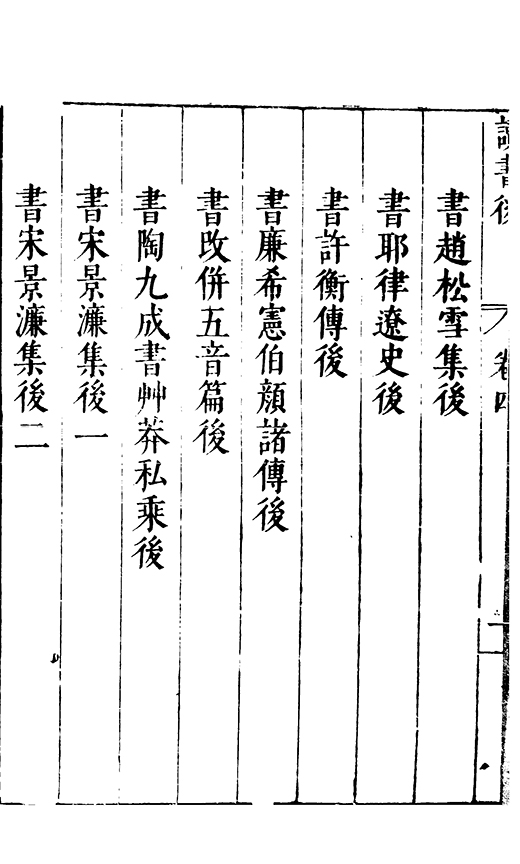 讀書後 卷四 一
書趙松雪集後
書耶律遼史後
書許衡傳後
書廉希憲伯顏諸傳後
書改併五音篇後
書陶九成書艸莽私乘後
書宋景濂集後一
書宋景濂集後二